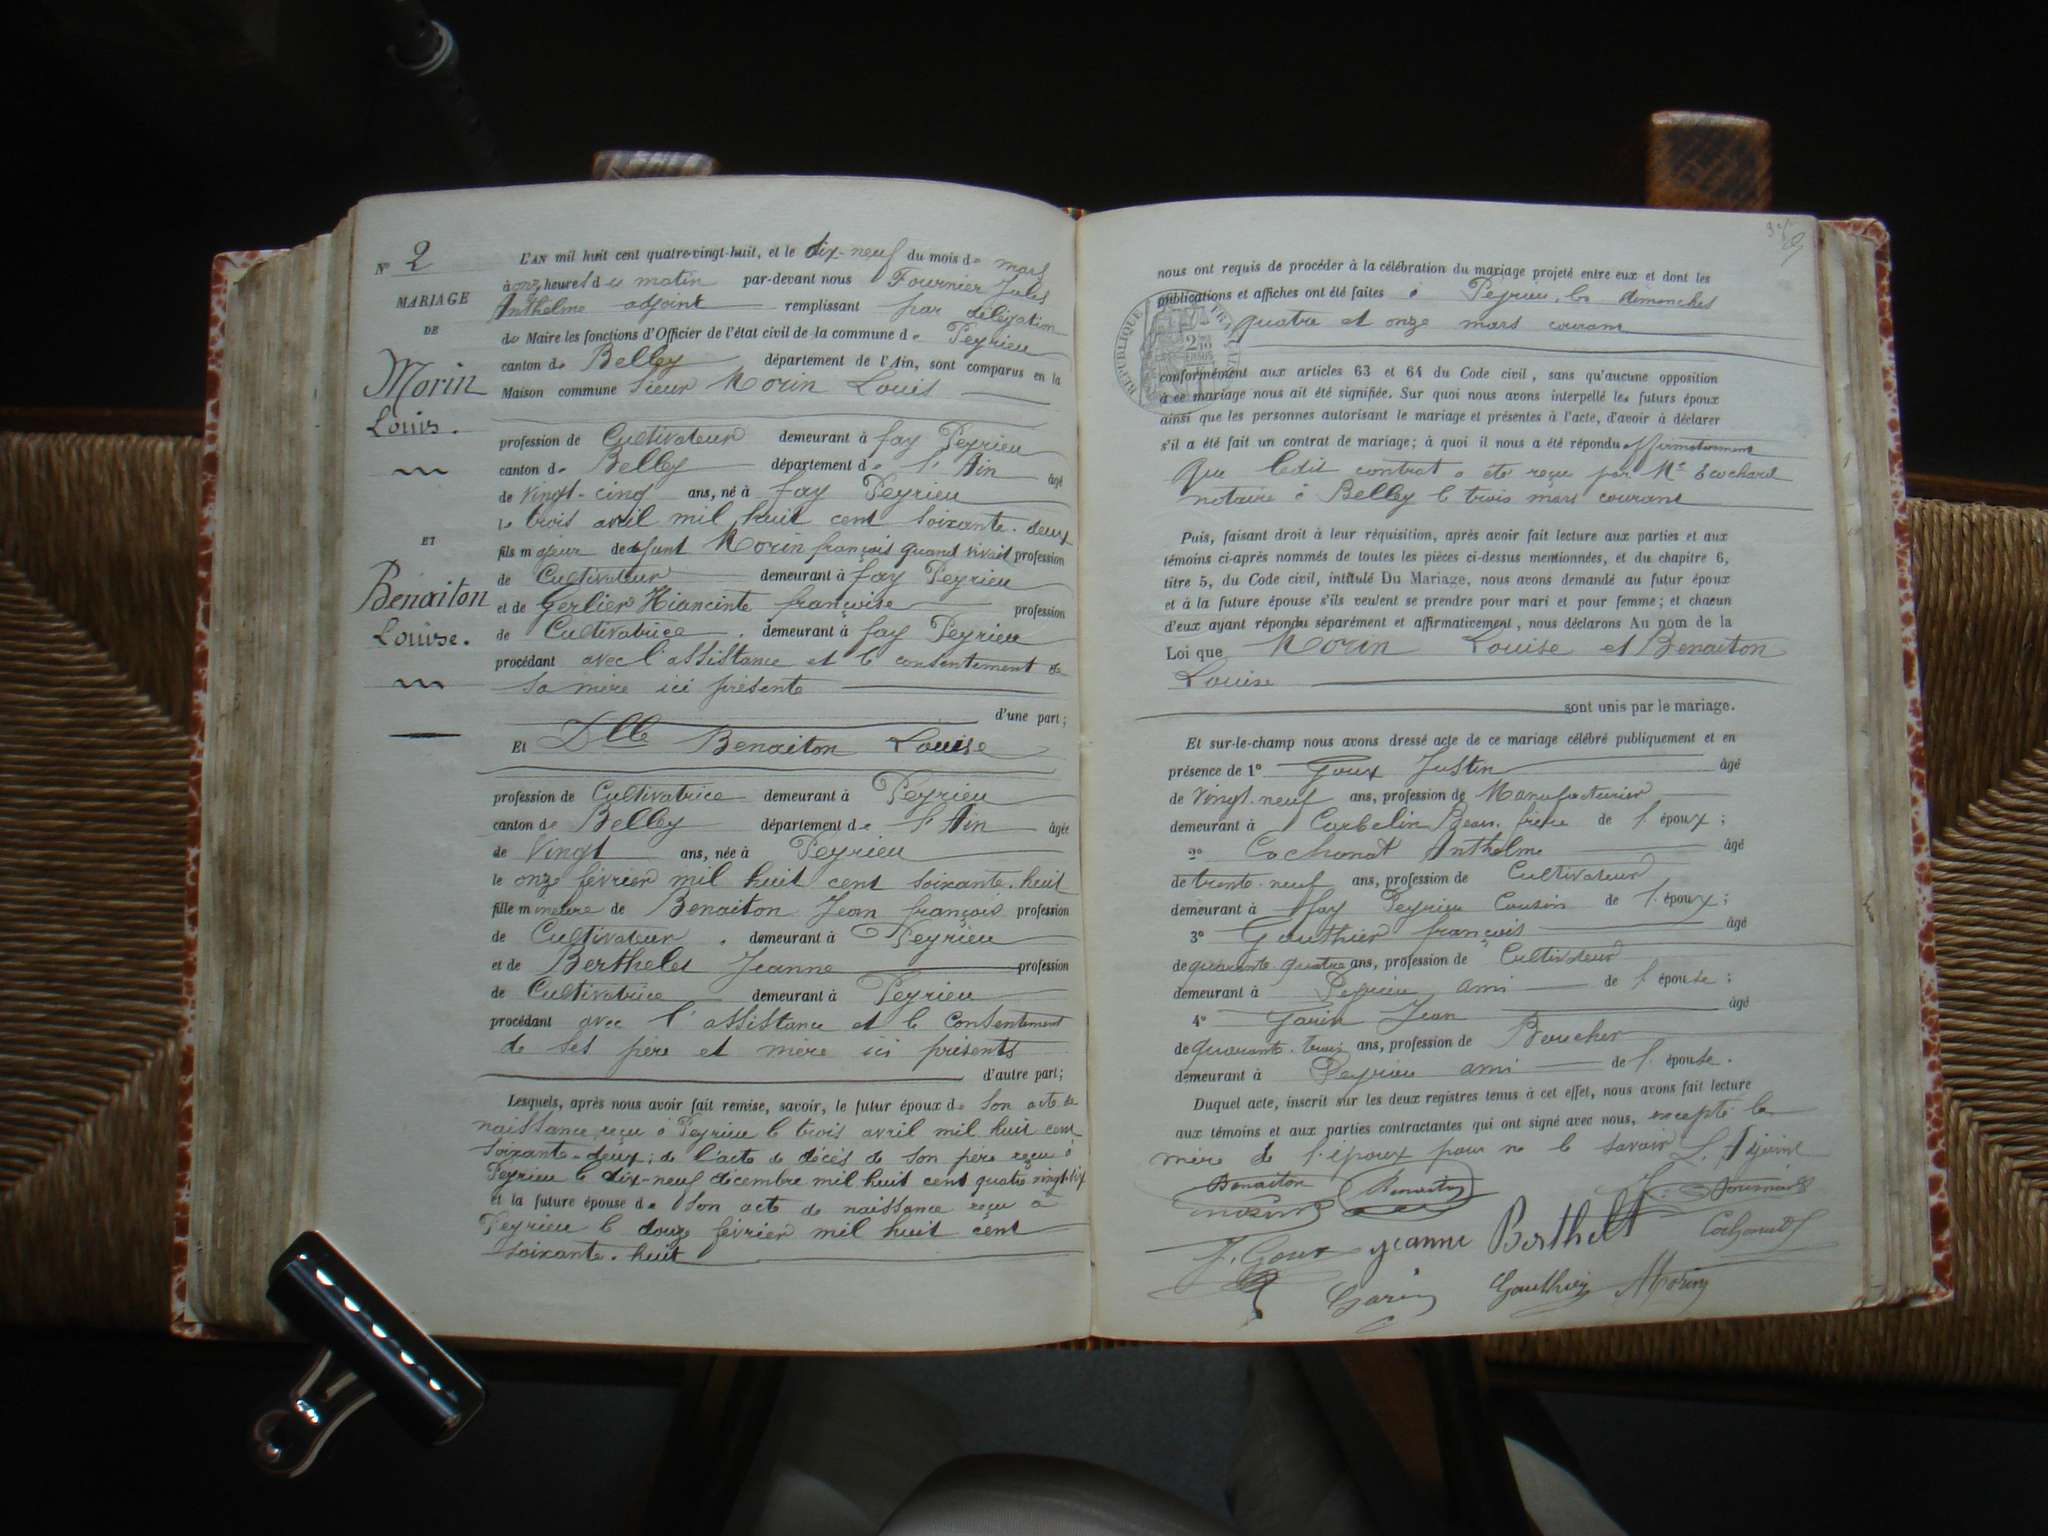 N° 2
MARIAGE
DE
Morin
Louis.
ET
Benaiton
Louise.
L'AN mil huit cent quatre-vingt-huit, et le dix-neuf du mois de mars
à onze heures du matin par-devant nous Fournier Jules
Anthelme adjoint remplissant par délégation
de Maire les fonctions d'Officier de l'état civil de la commune de Peyrieu
canton de Belley département de l'Ain, sont comparus en la
Maison commune Sieur Morin Louis
profession de Cultivateur demeurant à fay Peyrieu
canton de Belley département de l'Ain âgé
de vingt-cinq ans, né à fay Peyrieu
le trois avril mil huit cent soixante-deux
fils majeur de défunt Morin françois quand vivait profession
de Cultivateur demeurant à fay Peyrieu
et de Gerlier Hiancinte françoise profession
de Cultivatrice demeurant à fay Peyrieu
procédant avec l'assistance et le consentement de
sa mère ici présente
d'une part;
Et Dlle Benaiton Louise
profession de Cultivatrice demeurant à Peyrieu
canton de Belley département de l'Ain âgée
de Vingt ans, née à Peyrieu
le onze février mil huit cent soixante-huit
fille mineure de Benaiton Jean françois profession
de Cultivateur demeurant à Peyrieu
et de Berthelet Jeanne profession
de Cultivatrice demeurant à Peyrieu
procédant avec l'assistance et le consentement
de ses père et mère ici présents
d'autre part;
Lesquels, après nous avoir fait remise, savoir, le futur époux de son acte de
naissance reçu à Peyrieu le trois avril mil huit cent
soixante-deux; de l'acte de décès de son père reçu à
Peyrieu le dix-neuf décembre mil huit cent quatre vingt-six
et la future épouse de son acte de naissance reçu à
Peyrieu le douze février mil huit cent
soixante-huit
nous ont requis de procéder à la célébration du mariage projeté entre eux et dont les
publications et affiches ont été faites à Peyrieu, les dimanches
quatre et onze mars courant
RÉPUBLIQUE FRANÇAISE
conformément aux articles 63 et 64 du Code civil, sans qu'aucune opposition
à ce mariage nous ait été signifiée. Sur quoi nous avons interpellé les futurs époux
ainsi que les personnes autorisant le mariage et présentes à l'acte, d'avoir à déclarer
s'il a été fait un contrat de mariage; à quoi il nous a été répondu affirmativement
que ledit contrat a été reçu par Me Ecochard
notaire à Belley le trois mars courant
Puis, faisant droit à leur réquisition, après avoir fait lecture aux parties et aux
témoins ci-après nommés de toutes les pièces ci-dessus mentionnées, et du chapitre 6,
titre 5, du Code civil, intitulé Du Mariage, nous avons demandé au futur époux
et à la future épouse s'ils veulent se prendre pour mari et pour femme; et chacun
d'eux ayant répondu séparément et affirmativement, nous déclarons Au nom de la
Loi que Morin Louise et Benaiton
Louise
sont unis par le mariage.
Et sur-le-champ nous avons dressé acte de ce mariage célébré publiquement et en
présence de 1° Goux Justin âgé
de vingt-neuf ans, profession de Manufacturier
demeurant à Corbelin Beau-frère de l'époux;
2° Cochonat Anthelme âgé
de trente-neuf ans, profession de Cultivateur
demeurant à fay Peyrieu Cousin de l'époux;
3° Gauthier françois âgé
de quarante quatre ans, profession de Cultivateur
demeurant à Peyrieu ami de l'épouse;
4° Garin Jean âgé
de quarante-trois ans, profession de Boucher
demeurant à Peyrieu ami de l'épouse.
Duquel acte, inscrit sur les deux registres tenus à cet effet, nous avons fait lecture
aux témoins et aux parties contractantes qui ont signé avec nous, excepté la
mère de l'époux pour ne le savoir L. Adjoint
Benaiton Benaiton J. Fournier
Morin
J. Goux Jeanne Berthelet Cochonat
Garin Gauthier Morin